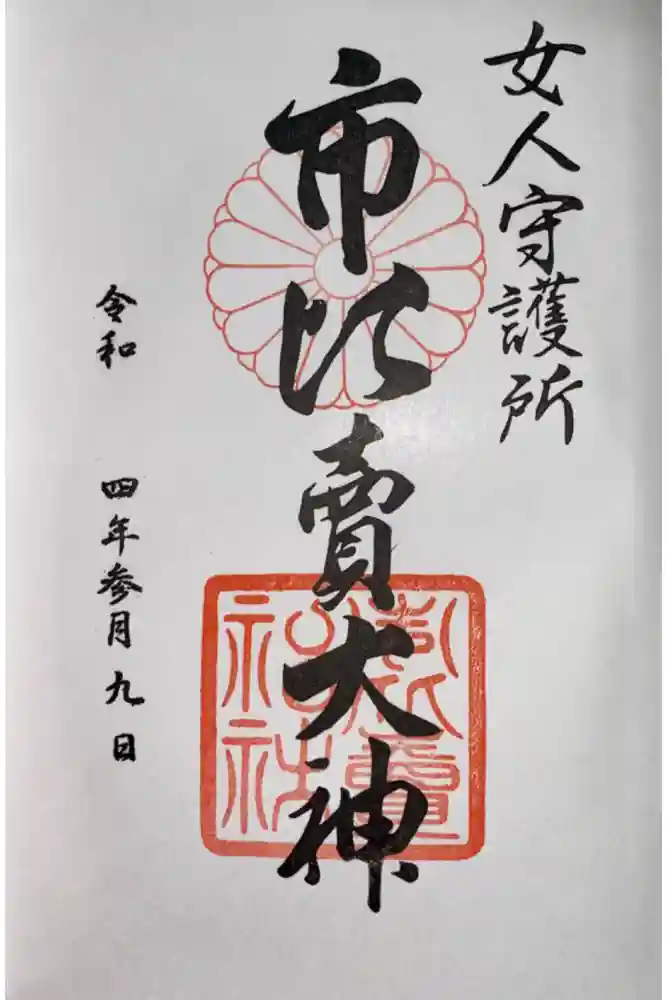 女人守護所
市比賣大神
令和四年参月九日